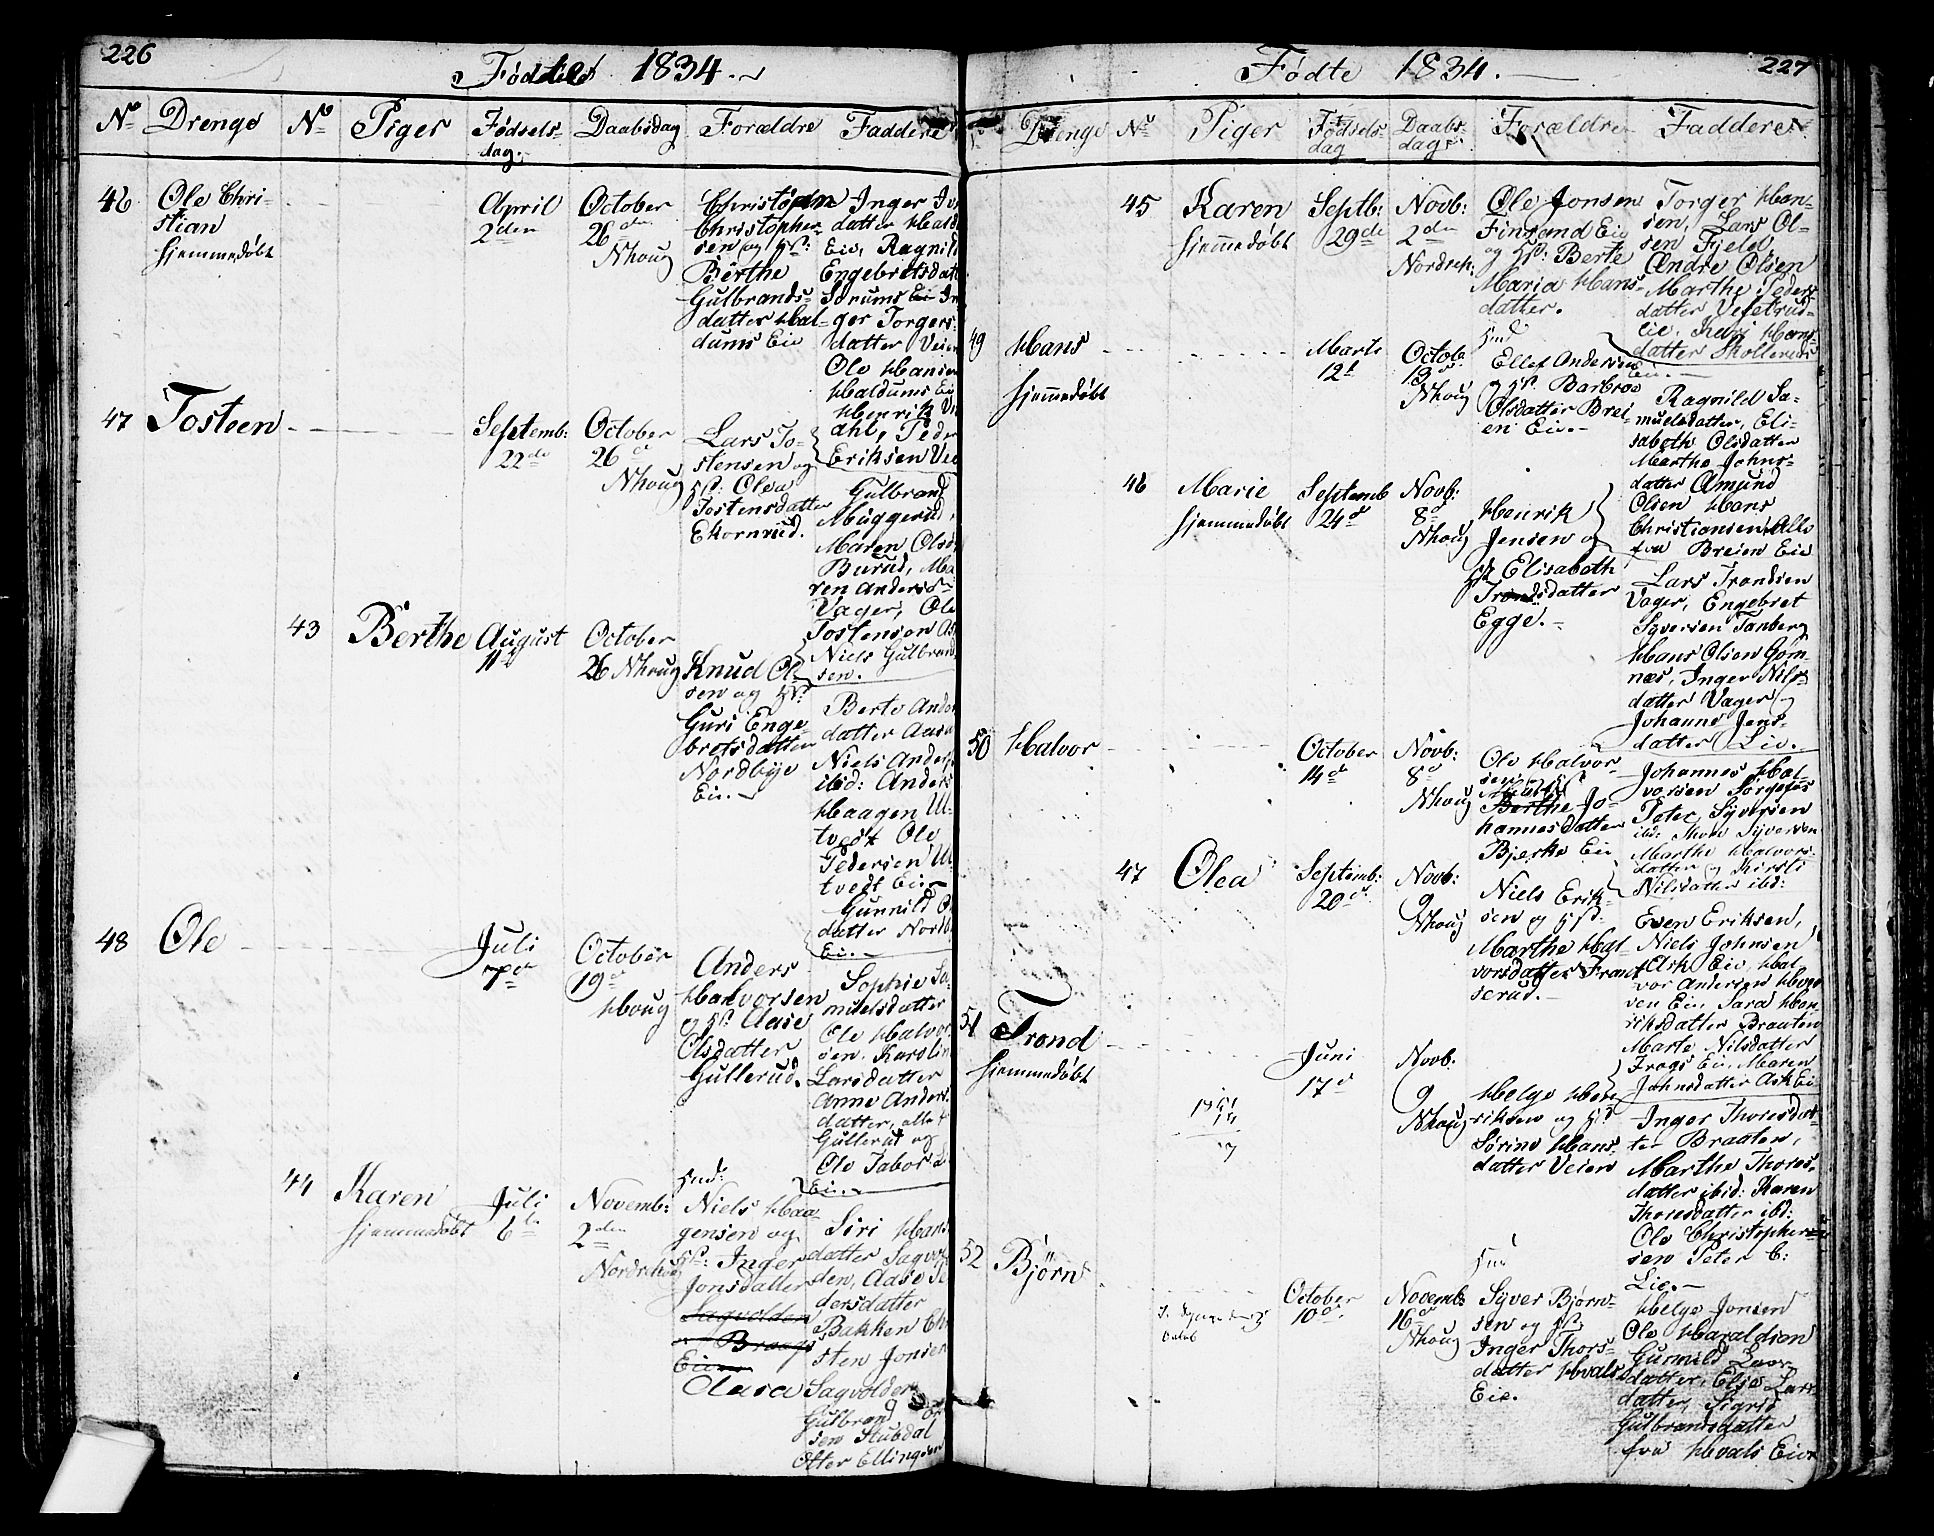 226
Fødte 1834.
No Drenge No Piger Fødsels- Daabsdag Forældre Faddere
dag.
46 Ole Chri-
stian
hjemmedøbt
April
2den
October
26de
Nhoug
Christopher
Christopher-
sen og Hst:
Berthe
Gulbrands-
datter Hal-
dums Eie
Inger
datter Hald
Eie, Ragnild
Engebretsdat
Sørums Eie In
ger Torgers-
datter Veien
Ole Hansen
Haldums Eie
Henrik
dahl, Peder
Eriksen
47 Tosteen
Septemb:
22de
October
26de
Nhoug
Lars To-
stensen og
Hst: Olea
Tostensdatter
Ekornrud.
Gulbrand
Muggerud,
Maren Ols
Burud, Ma
ren Anders
Vager, Ole
Tostensen
Niels Gulbran
sen.
43 Berthe
August
11te
October
26 Nhoug
Knud Ol-
sen og Hst
Guri Enge-
bretsdatter
Nordbye
Eie.
Berte Anders
datter
Niels Anders
ibid: Anders
Haagen Ul
tvedt Ole
Pedersen Ul
tvedt Eie
Gunnild
datter Nordb
Eie.
48 Ole
Juli
7de
October
19de
Houg
Anders
Halvorsen
og Hst. Aase
Olsdatter
Gullerud.
Sophie Sa-
muelsdatter
Ole Halvor
sen. Karolin
Larsdatter
Anne Anders
datter, alle f
Gullerud og
Ole Tabor
Eie.
44 Karen
hjemmedøbt
Juli
6te
Novemb:
2den
Nordrehoug
Hnd:
Niels Haa-
gensen og
Hst: Inger
Jonsdatter
Sagvolden
Braags
Eie
Clara
Siri Hans
datter Sagvol
den, Aase Pe
dersdatter
Bakken Chri
sten Jonsen
Sagvolden
Gulbrand
sen Stubdal
Otter Ellingsen
227
Fødte 1834.
Drenge No Piger Fødsels- Daabs- Forældre Faddere
dag dag
45 Karen
hjemmedøbt
Septb:
29de
Novb:
2den
Nordreh:
Ole Jonsen
Finsand Eie
og Hst: Berte
Maria Hans-
datter.
Torger Han-
sen, Lars Ol-
sen Fjeld,
Andre Olsen
Marthe Peders
datter Veletrud-
eie, Kari Hans-
datter Skollerud
Eie.
49 Hans
hjemmedøbt
Marts
12t
Octob.
19de
Nhoug
Hnd
Ellef Andersen
og Hst. Barbroe
Olsdatter Brei-
en Eie.
Ragnild Sa-
muelsdatter, Eli-
sabeth Olsdatter
Marthe Johns-
datter Amund
Olsen Hans
Christiansen, Alle
fra Breien Eie
46 Marie
hjemmedøbt
Septemb
24de
Novb:
8de
Nhoug
Henrik
Jensen og
Hst Elisabeth
Trondsdatter
Egge.
Lars Trondsen
Vager, Engebret
Syversen Tanberg
Hans Olsen Gom-
nes, Inger Nils-
datter Vager og
Johanne Jens-
datter Lie.
50 Halvor
October
14de
Novb:
8de
Nhoug
Ole Halvor-
sen og Hst
Berthe Jo-
hannesdatter
Bjerke Eie
Johannes Hal-
vorsen Sørgefos
Peter Syversen
ibd: Thore Syversen
Marthe Halvors-
datter og Kirsti
Nilsdatter ibd:
47 Olea
Septemb:
20de
Novb:
9
Nhoug
Niels Erik-
sen og Hst:
Marthe Hal-
vorsdatter Frant
serud.
Even Eriksen,
Niels Johnsen
Ask Eie Hal-
vor Andersen
sen Eie, Sara Hen-
riksdatter Braaten
Marte Nilsdatter
Frogs Eie, Maren
Johnsdatter Ask Eie
51 Trond
hjemmedøbt
Juni
17de
Novb:
9
Nhoug
Helge Hen-
riksen og Hst
Sørine Hans-
datter Veien
Inger Thoresdat-
ter Braaten,
Marthe Thores-
datter ibid: Karen
Thoresdatter ibd:
Ole Christopher-
sen Peter C:
Lie.
1851
17
52 Bjørn
October
10de
Novemb:
16de
Nhoug
Hnd
Syver Bjørn-
sen og Hst
Inger Thors-
datter Hvals
Eie.
Helge Jonsen
Ole Haraldsen
Gunnild Lars-
datter, Elje Lars
datter, Sigrid
Gulbrandsdatter
fra Hvals Eie